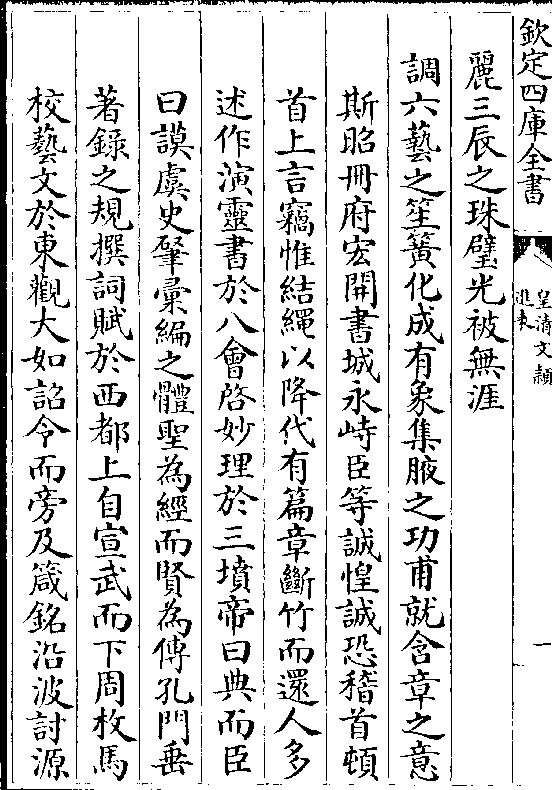 欽定四庫全書
皇清文穎
進表
一
麗三辰之珠璧光被無涯
調六藝之笙簧化成有象集腋之功甫就含章之意
斯昭冊府宏開書城永峙臣等誠惶誠恐稽首頓
首上言竊惟結繩以降代有篇章斷竹而還人多
述作演靈書於八會啓妙理於三墳帝曰典而臣
曰謨虞史肈彙編之體聖為經而賢為傳孔門垂
著錄之規撰詞賦於西都上自宣武而下周枚馬
校藝文於東觀大如詔令而旁及箴銘沿波討源